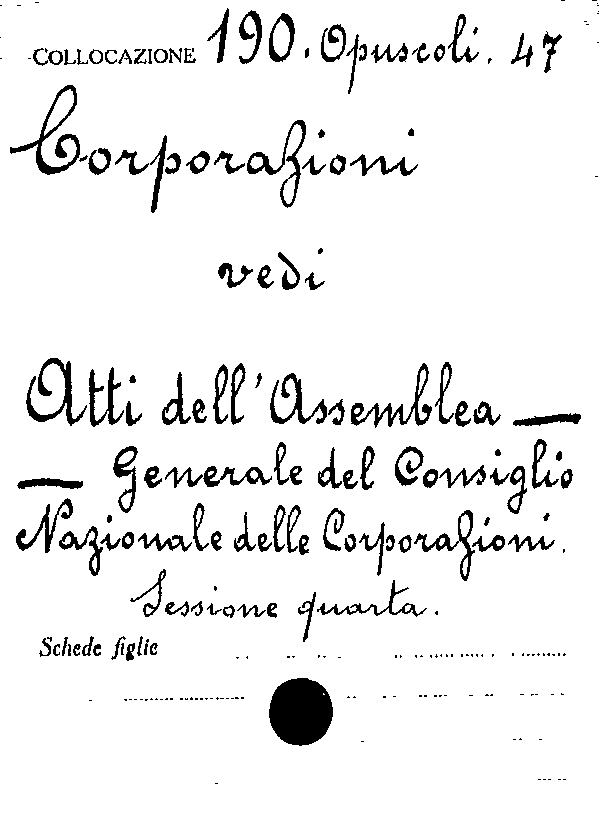 COLLOCAZIONE 190. Opuscoli. 47
Corporazioni
vedi
Atti dell'Assemblea —
— Generale del Consiglio
Nazionale delle Corporazioni.
Sessione quarta.
Schede figlie